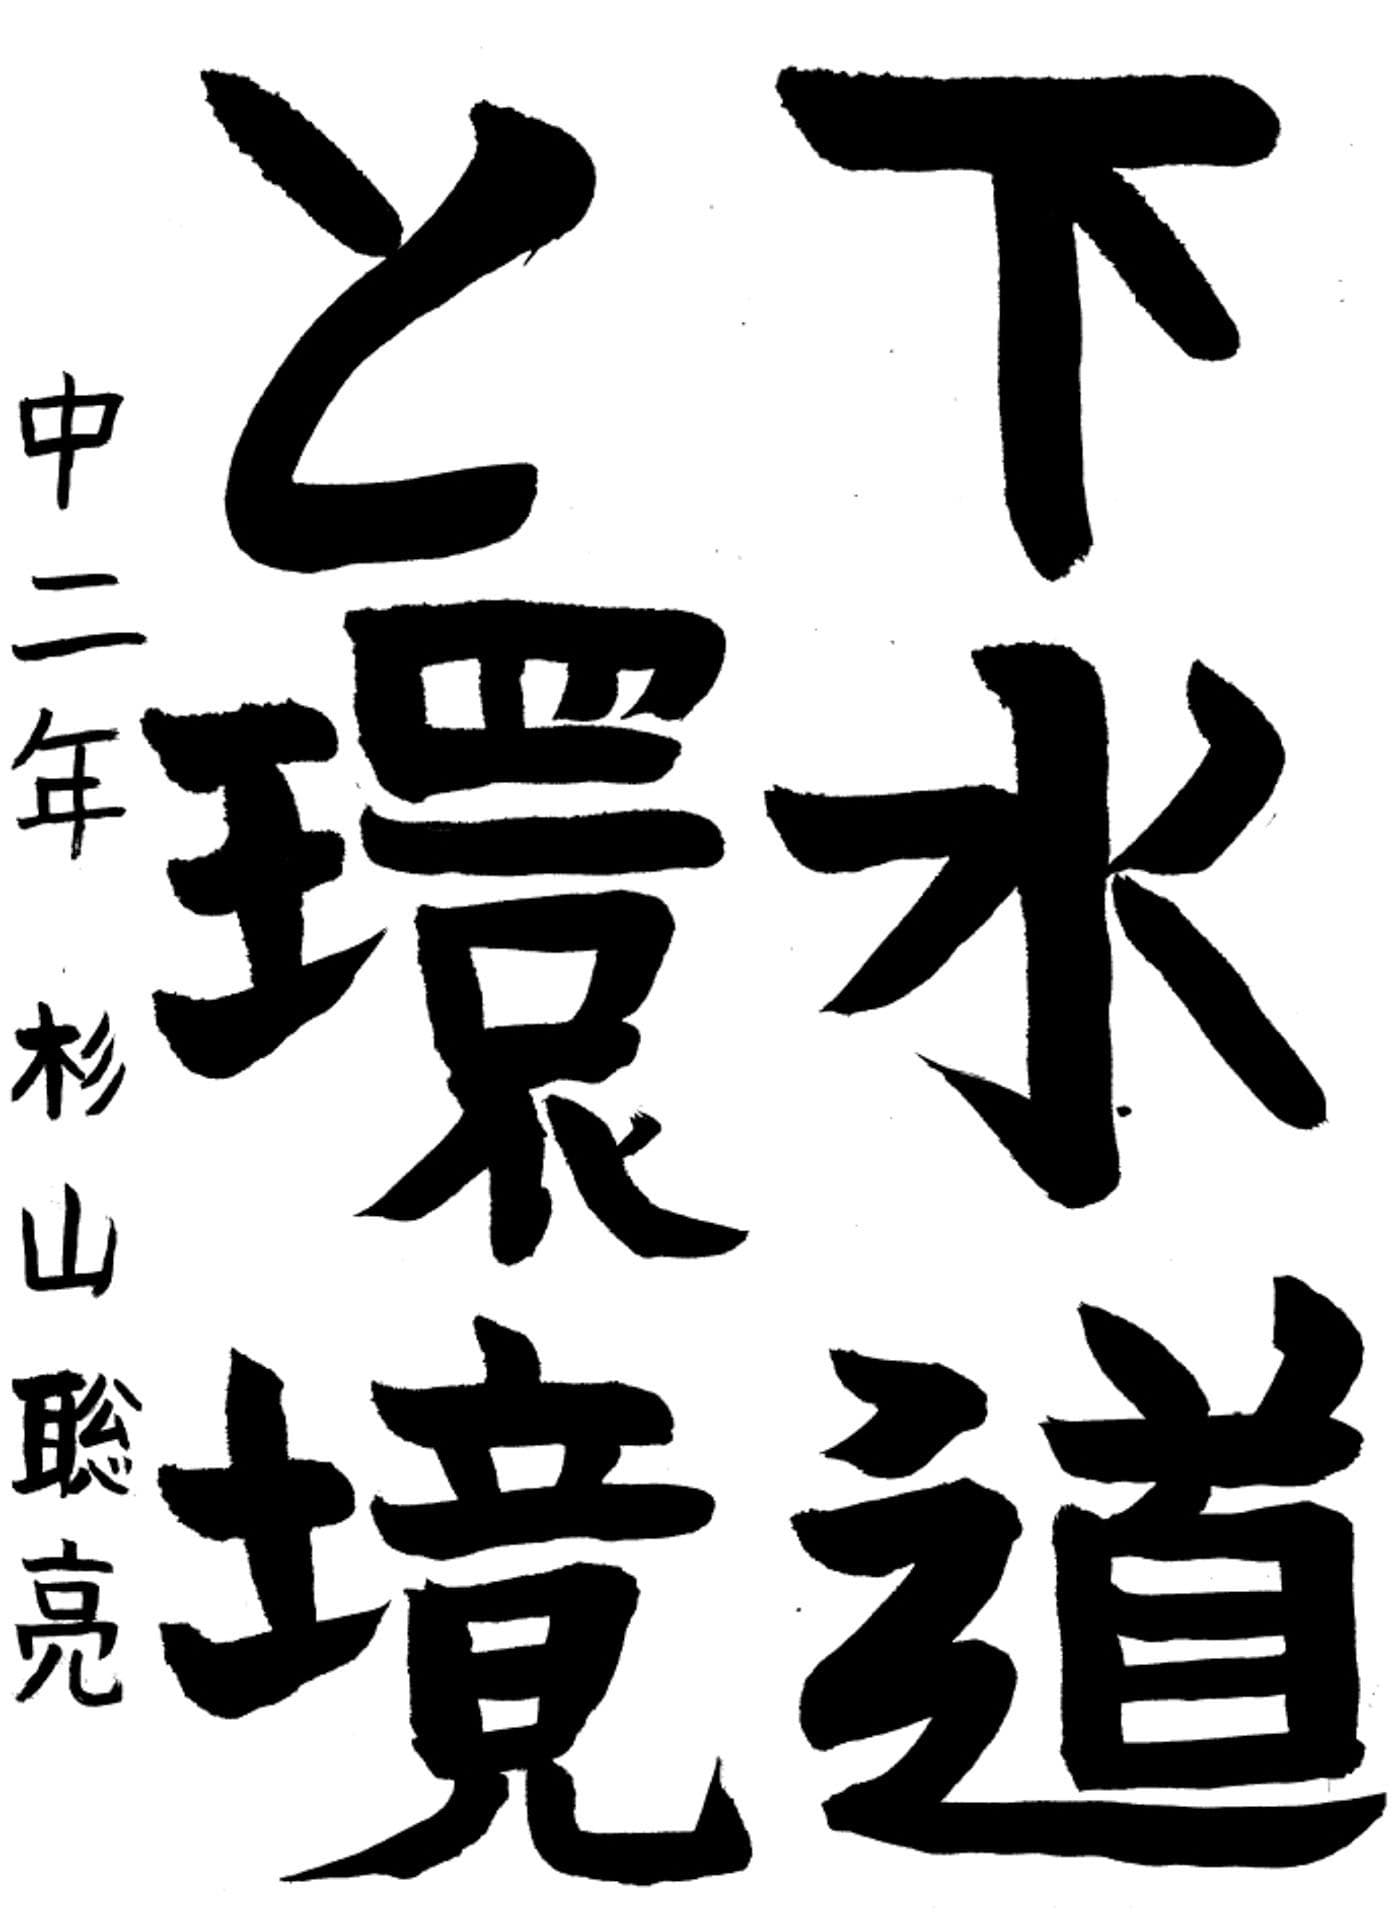 下水道
と環境
中二年 杉山聡亮